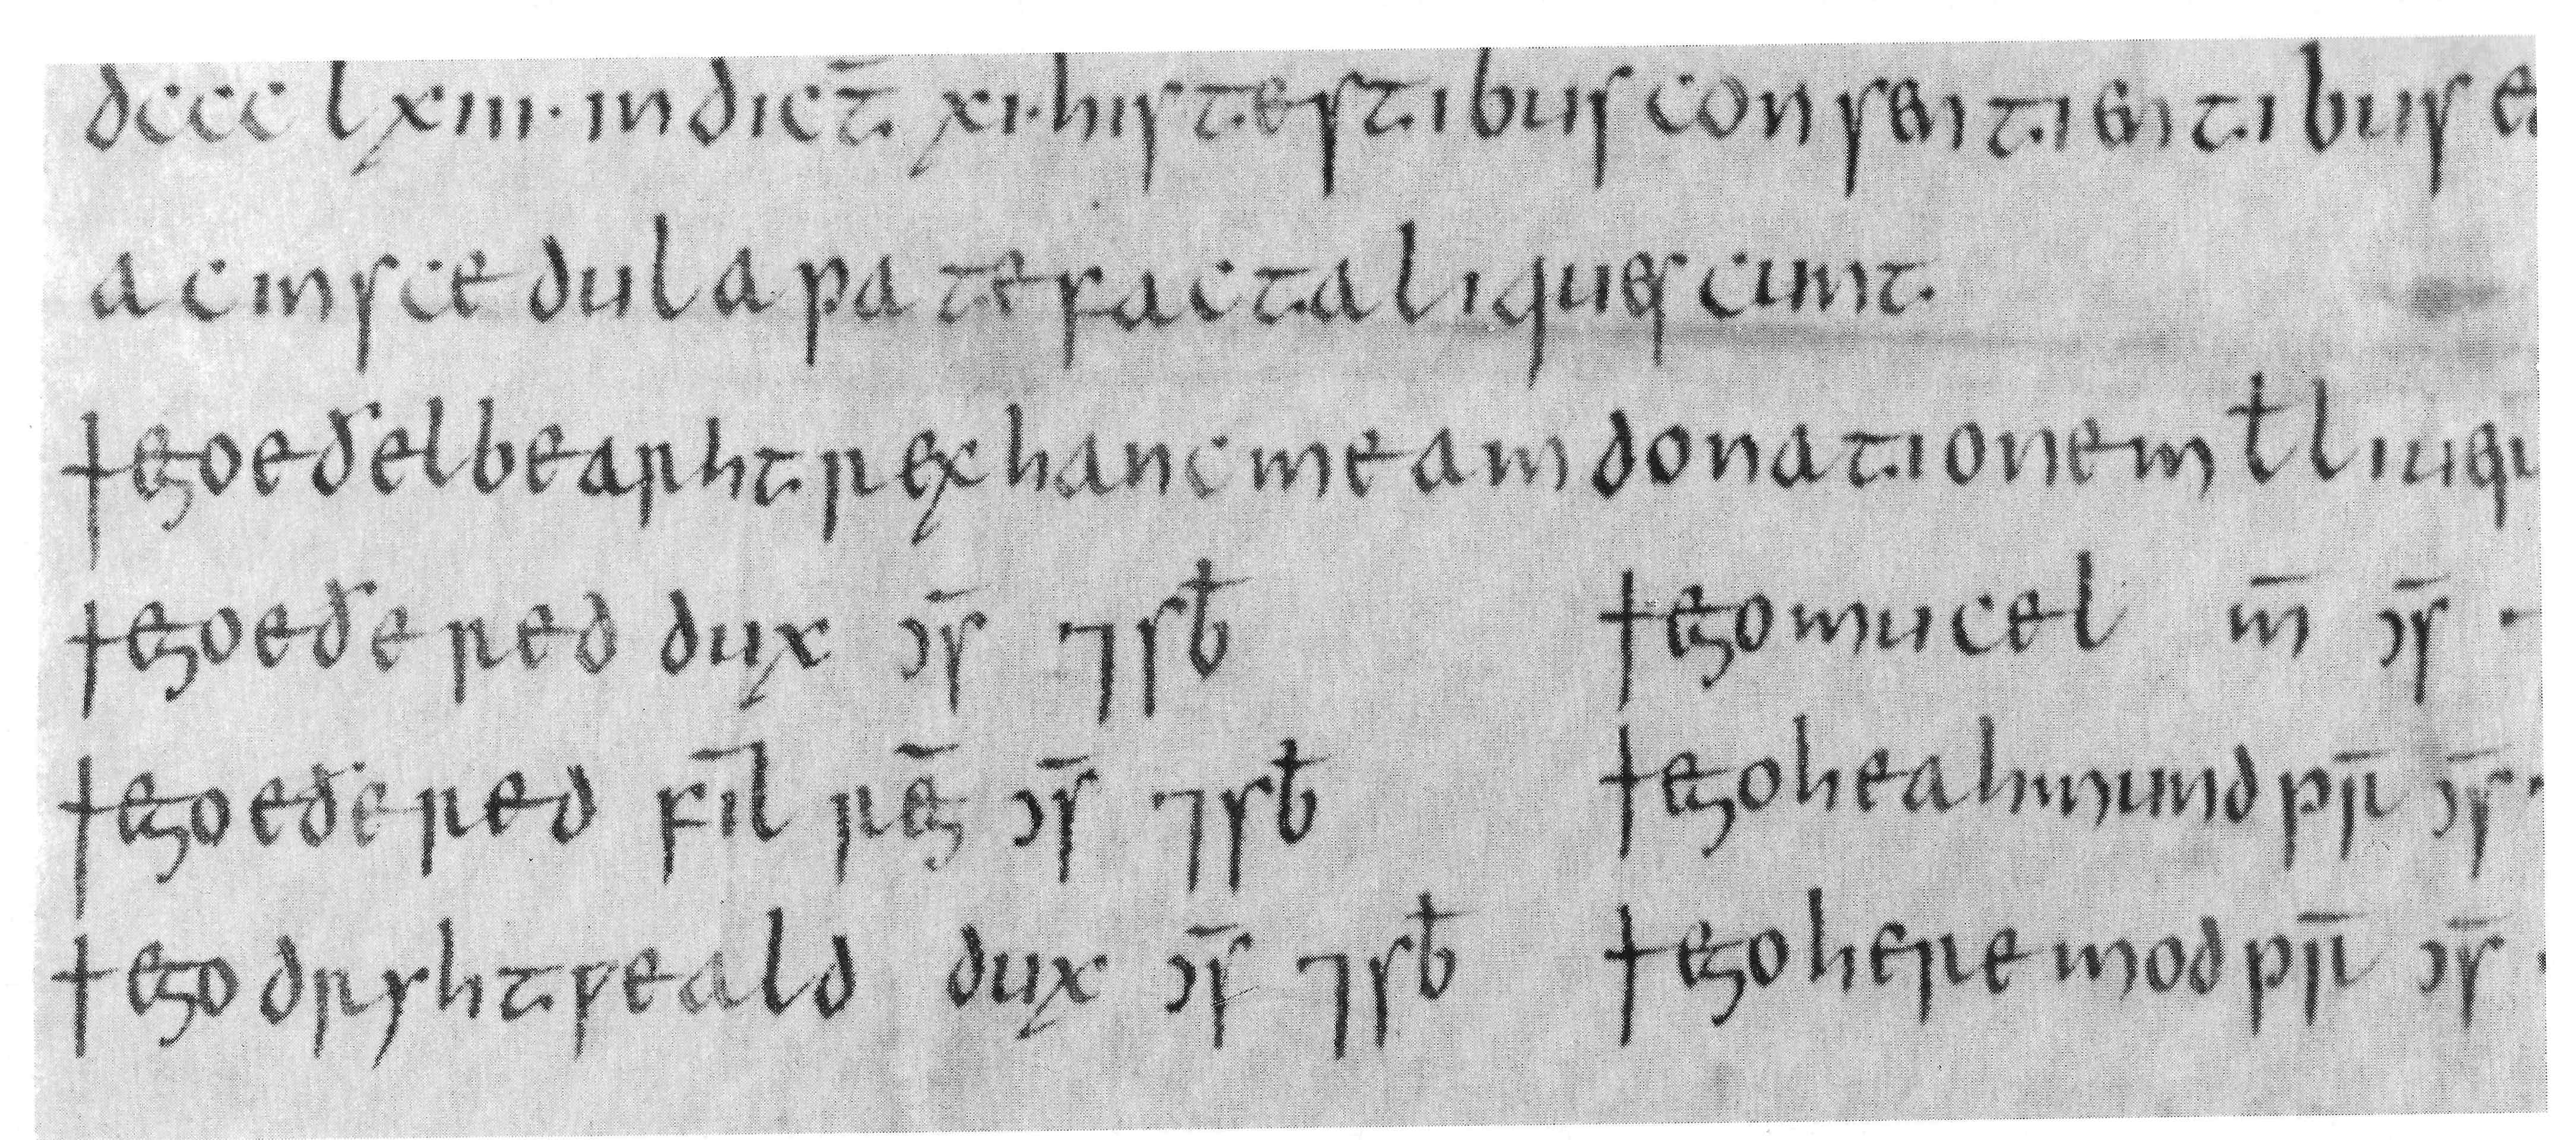 dccc lxiii · indict̄ xi · his testibus consentientibus et
ac in scedula patefacta liquescunt
† ego eðelbearht rex hanc meam donationem ꝉ liu
† ego eðered dux ↄs̄ ⁊ sƀ † ego mucel m̄ ↄs̄
† ego eðered fil̄ reḡ ↄs̄ ⁊ sƀ † ego heahmund pr̄ ↄs̄
† ego dryhtƿeald dux ↄs̄ ⁊ sƀ † ego heremod pr̄ ↄs̄